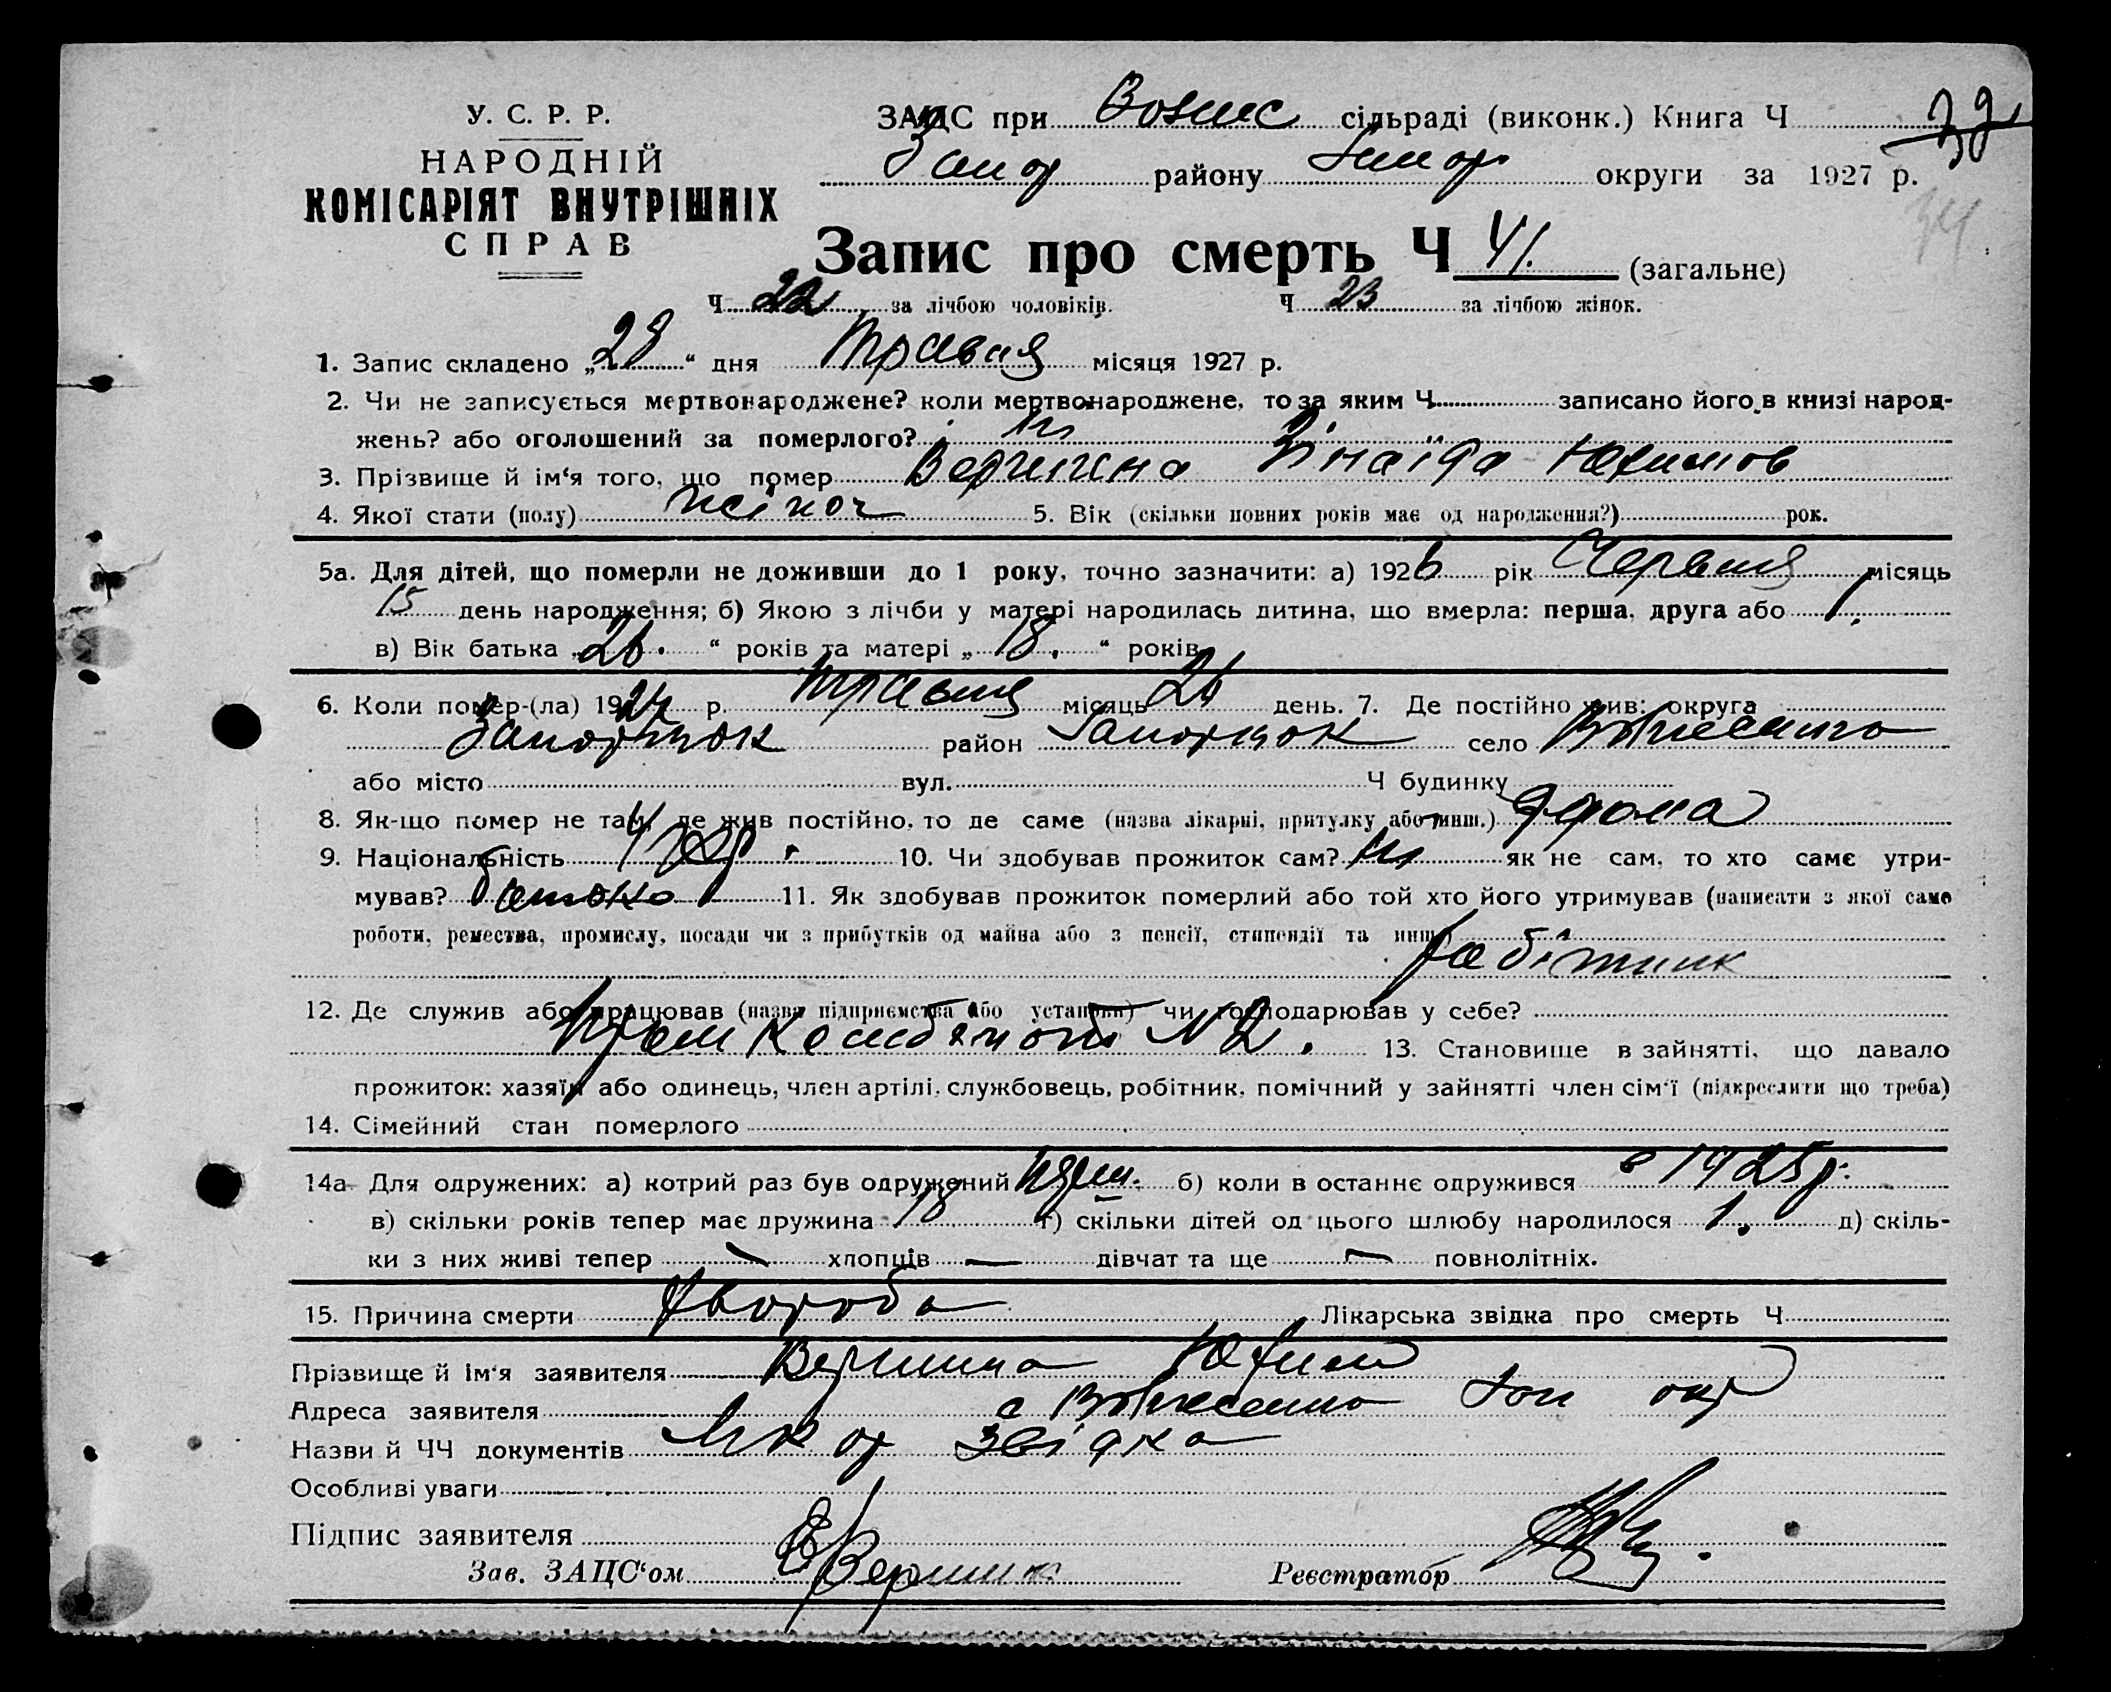 У. С. Р. Р.
НАРОДНІЙ
КОМІСАРІЯТ ВНУТРІШНІХ
СПРАВ
ЗАЦС при Вознес сільраді (виконк.) Книга Ч
Запор району Запор округи за 1927 р.
34
Запис про смерть Ч 41. (загальне)
Ч 22 за лічбою чоловіків. Ч 23 за лічбою жінок.
1. Запис складено „28“ дня Травня місяця 1927 р.
2. Чи не записується мертвонароджене? коли мертвонароджене, то за яким Ч записано його в книзі народ-
жень? або оголошений за померлого? ні
3. Прізвище й ім‘я того, що помер Зінаїда Юхимов
4. Якої стати (полу) жіноч 5. Вік (скільки повних років має од народження?) рок.
5а. Для дітей, що померли не доживши до 1 року, точно зазначити: а) 1926 рік Червня місяць
15 день народження; б) Якою з лічби у матері народилась дитина, що вмерла: перша, друга або 1.
в) Вік батька „26.“ років та матері „18.“ років
6. Коли помер-(ла) 1927 р. Травня місяць 26 день. 7. Де постійно жив: округа
Запоріжок район Запоріжок село Вознесенка
або місто вул. Ч будинку
8. Як-що помер не там, де жив постійно, то де саме (назва лікарні, притулку або инш.) Вдома
9. Національність Укр. 10. Чи здобував прожиток сам? ні як не сам, то хто саме утри-
мував? батько 11. Як здобував прожиток померлий або той хто його утримував (написати з якої саме
роботи, ремества, промислу, посади чи з прибутків од майна або з пенсії, стипендії та инш.)
робітник
12. Де служив або працював (назва підприємства або установи) чи господарював у себе?
N 2. 13. Становище в зайнятті, що давало
прожиток: хазяїн або одинець, член артілі, службовець, робітник, помічний у зайнятті член сім‘ї (підкреслити що треба)
14. Сімейний стан померлого
14а Для одружених: а) котрий раз був одружений перш. б) коли в останнє одружився в 1925 р.
в) скільки років тепер має дружина 18 г) скільки дітей од цього шлюбу народилося 1. д) скіль-
ки з них живі тепер — хлопців — дівчат та ще — повнолітніх.
15. Причина смерти Хвороба Лікарська звідка про смерть Ч
Прізвище й ім‘я заявителя Юхим
Адреса заявителя с Вознесенка Зап окр
Назви й ЧЧ документів Лікар звідка
Особливі уваги
Підпис заявителя
Зав. ЗАЦС‘ом Реєстратор